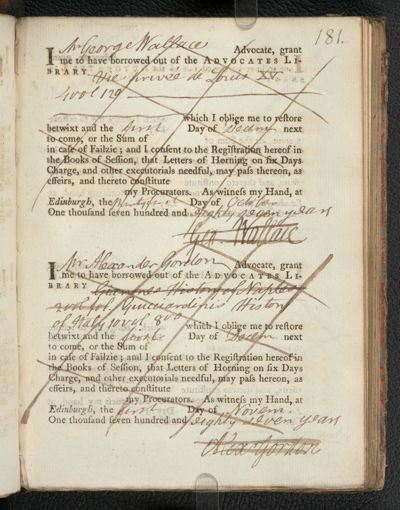 181.
I Mr George Wallace Advocate, grant
me to have borrowed out of the ADVOCATES LI-
BRARY Vie privée de Louis XV.
4 vol 12º
which I oblige me to restore
betwixt and the first Day of Decemr next
to come, or the Sum of
in case of Failzie; and I consent to the Registration hereof in
the Books of Session, that Letters of Horning on six Days
Charge, and other executorials needful, may pass thereon, as
effeirs, and thereto constitute
my Procurators. As witness my Hand, at
Edinburgh, the Day of Octobr
One thousand seven hundred and eighty seven years
Geo. Wallace
I Mr Alexander Gordon Advocate, grant
me to have borrowed out of the ADVOCATES LI-
BRARY History of Naples
2 vol fol. Guicciardini's History
of Italy 10 vol 8vo which I oblige me to restore
betwixt and the Day of Decem next
to come, or the Sum of
in case of Failzie; and I consent to the Registration hereof in
the Books of Session, that Letters of Horning on six Days
Charge, and other executorials needful, may pass hereon, as
effeirs, and thereto constitute
my Procurators. As witness my Hand, at
Edinburgh, the first Day of Novem.
One thousand seven hundred and eighty seven years
Alexr Gordon